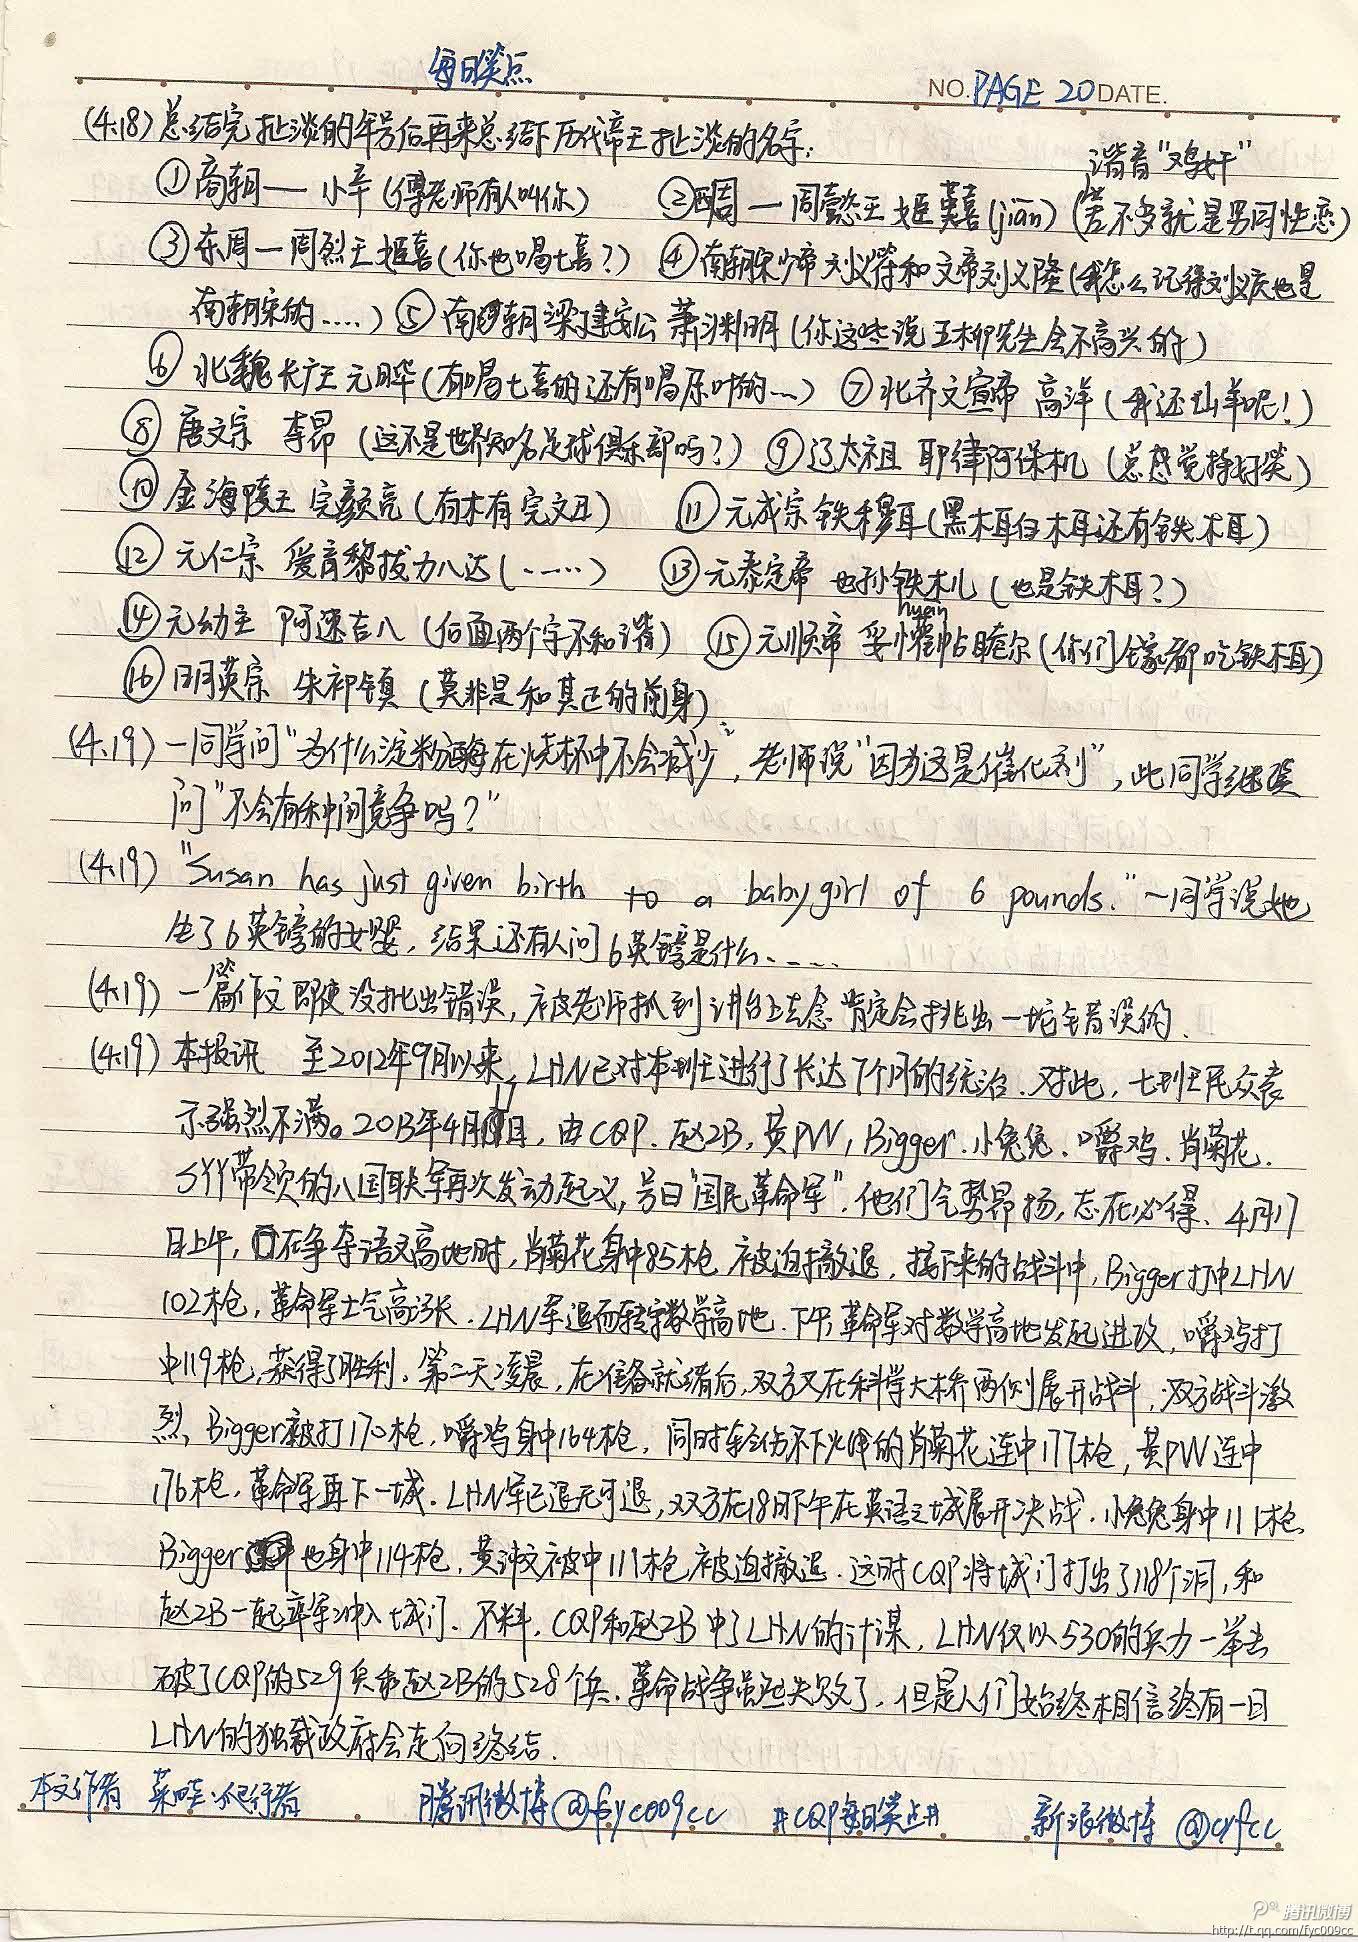 每日笑点
NO. PAGE 20 DATE.
(4.18) 总结完扯淡的年号后再来总结下历代帝王扯淡的名字:
谐音"鸡奸"
①商朝— 小辛 (傅老师有人叫你) ②西周 — 周懿王 姬囏(jiān) (差不多就是男同性恋)
③东周—周烈王 姬喜 (你也喝七喜?) ④南朝宋少帝 刘义符和文帝刘义隆 (我怎么记得刘义庆也是
南朝宋的.....) ⑤南朝梁建安公 萧渊明 (你这些说五柳先生会不高兴的)
⑥北魏长广王 元晔 (有喝七喜的还有喝尿叶的...) ⑦北齐文宣帝 高洋 (我还山羊呢!)
⑧唐文宗 李昂 (这不是世界知名足球俱乐部吗?) ⑨辽太祖 耶律阿保机 (总感觉特好笑)
⑩金海陵王 完颜亮 (有木有完文丑) ⑪元成宗 铁穆耳 (黑木耳白木耳还有铁木耳)
⑫元仁宗 爱育黎拔力八达 (.....) ⑬元泰定帝 也孙铁木儿 (也是铁木耳?)
huan
⑭元幼主 阿速吉八 (后面两个字不和谐) ⑮元顺帝 妥懽帖睦尔 (你们全家都吃铁木耳)
⑯明英宗 朱祁镇 (莫非是和其正的前身)
(4.19) 一同学问"为什么淀粉酶在烧杯中不会减少", 老师说"因为这是催化剂", 此同学继续
问"不会有种间竞争吗?"
(4.19) "Susan has just given birth to a baby girl of 6 pounds." 一同学说她
生了6英镑的女婴, 结果还有人问6英镑是什么.....
(4.19) 一篇作文即使没批出错误, 被老师抓到讲台上去念肯定会挑出一坨错误的.
(4.19) 本报讯 至2012年9月以来, LHN已对本班王进行了长达7个月的统治. 对此, 七班王民众表
示强烈不满。2013年4月17日, 由CQP. 赵2B, 黄PW, Bigger. 小兔兔. 嚼鸡. 肖菊花.
SYY带领的八国联军再次发动起义, 号曰"国民革命军". 他们气势昂扬, 志在必得. 4月17
日上午, 在争夺语文高地时, 肖菊花身中85枪 被迫撤退. 接下来的战斗中, Bigger打中LHN
102枪, 革命军士气高涨. LHN军退而转守数学高地. 下午, 革命军对数学高地发起进攻, 嚼鸡打
中119枪, 获得了胜利. 第二天凌晨, 在准备就绪后, 双方又在科学大桥两侧展开战斗, 双方战斗激
烈, Bigger被打170枪, 嚼鸡身中164枪, 同时轻伤不下火线的肖菊花连中177枪, 黄PW连中
176枪, 革命军再下一城. LHN军已退无可退, 双方在18日下午在英语之城展开决战. 小兔兔身中111枪,
Bigger也身中114枪, 黄沛文被中111枪, 被迫撤退. 这时CQP将城门打出了118个洞, 和
赵2B一起率军冲入城门. 不料, CQP和赵2B中了LHN的计谋, LHN仅以530的兵力一举击
破了CQP的529兵和赵2B的528个兵. 革命战争虽然失败了, 但是人们始终相信终有一日
LHN的独裁政府会走向终结.
本文作者 菜哇爬行者 腾讯微博@fyc009cc #CQP每日笑点# 新浪微博 @cyfcc
腾讯微博
http://t.qq.com/fyc009cc